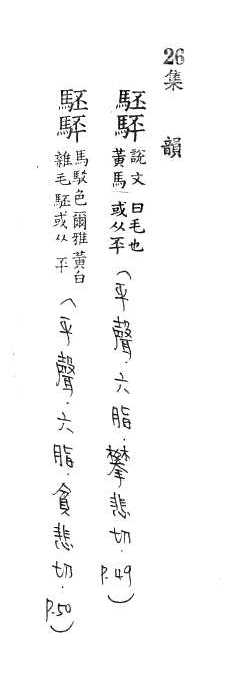 26集 韻
駓 說文黃馬白毛也或从㔻（平聲．六脂．攀悲切．P.49）
駓 馬駁色爾雅黃白雜毛駓或从㔻（平聲．六脂．貧悲切．P.50）